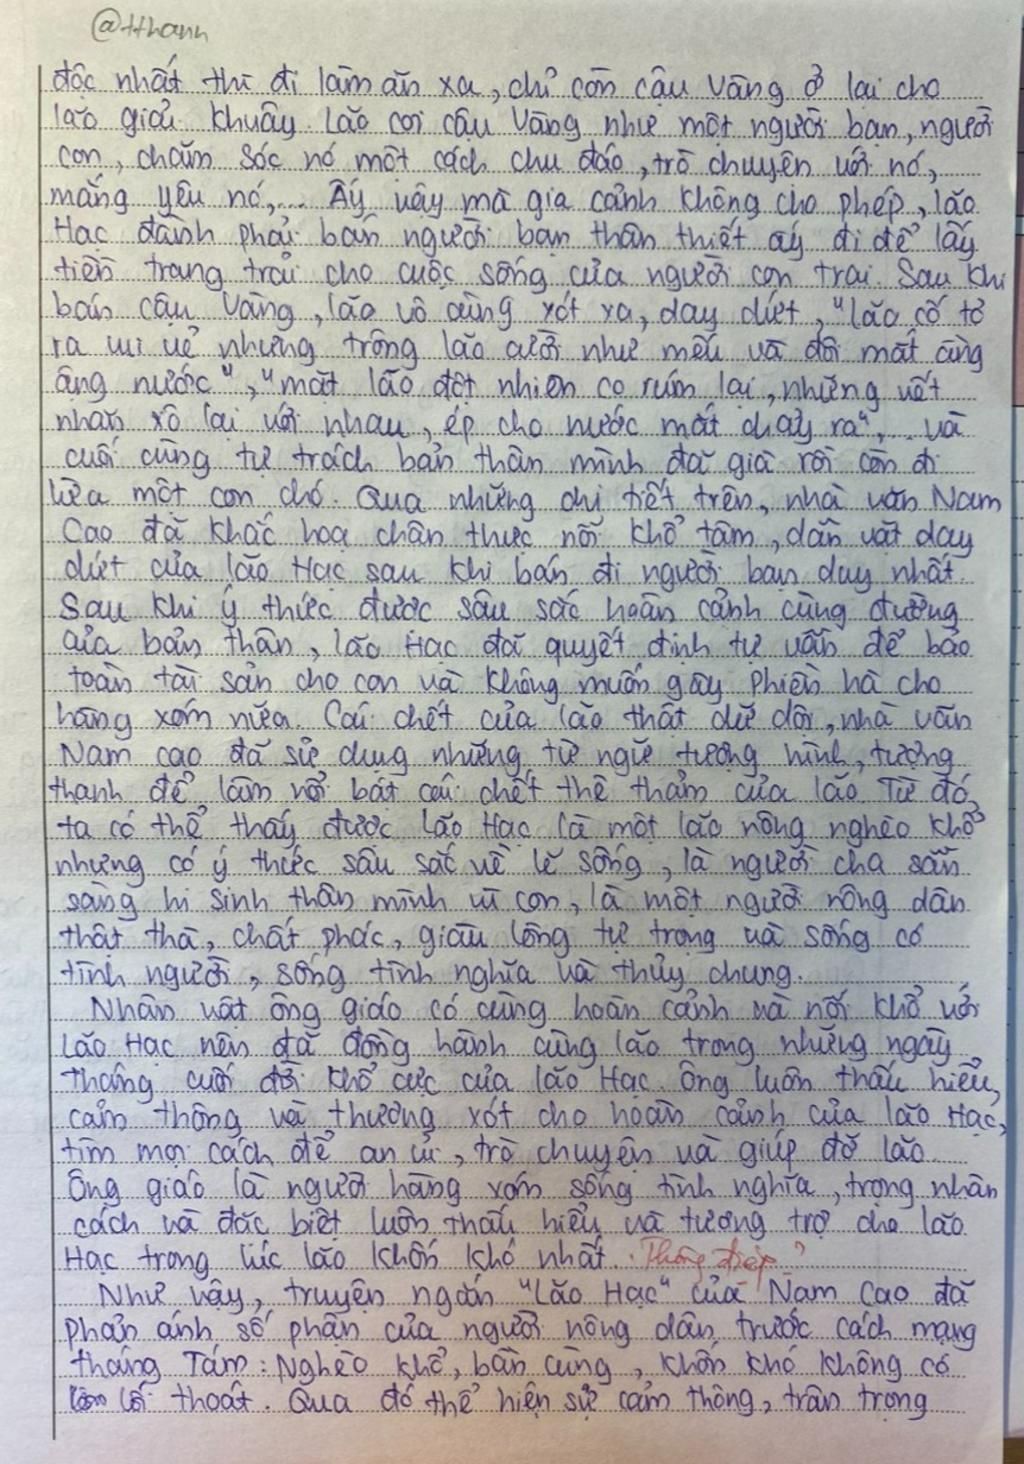 @tthanh
độc nhất thì đi làm ăn xa, chỉ còn cậu Vàng ở lại cho
lão giải khuây. Lão coi cậu Vàng như một người bạn, người
con, chăm sóc nó một cách chu đáo, trò chuyện với nó,
mắng yêu nó,... Ấy vậy mà gia cảnh không cho phép, lão
Hạc đành phải bán người bạn thân thiết ấy đi để lấy
tiền trang trải cho cuộc sống của người con trai. Sau khi
bán cậu Vàng, lão vô cùng xót xa, day dứt, "lão cố tỏ
ra vui vẻ nhưng trông lão cười như mếu và đôi mắt ầng
ậng nước", "mặt lão đột nhiên co rúm lại, những vết
nhăn xô lại với nhau, ép cho nước mắt chảy ra",... và
cuối cùng tự trách bản thân mình đã già rồi còn đi
lừa một con chó. Qua những chi tiết trên, nhà văn Nam
Cao đã khắc hoạ chân thực nỗi khổ tâm, dằn vặt day
dứt của lão Hạc sau khi bán đi người bạn duy nhất.
Sau khi ý thức được sâu sắc hoàn cảnh cùng đường
của bản thân, lão Hạc đã quyết định tự vẫn để bảo
toàn tài sản cho con và không muốn gây phiền hà cho
hàng xóm nữa. Cái chết của lão thật dữ dội, nhà văn
Nam cao đã sử dụng những từ ngữ tượng hình, tượng
thanh để làm nổi bật cái chết thê thảm của lão. Từ đó,
ta có thể thấy được Lão Hạc là một lão nông nghèo khổ
nhưng có ý thức sâu sắc về lẽ sống, là người cha sẵn
sàng hi sinh thân mình vì con, là một người nông dân
thật thà, chất phác, giàu lòng tự trọng và sống có
tình người, sống tình nghĩa và thủy chung.
Nhân vật ông giáo có cùng hoàn cảnh và nỗi khổ với
Lão Hạc nên đã đồng hành cùng lão trong những ngày
tháng cuối đời khổ cực của lão Hạc. Ông luôn thấu hiểu,
cảm thông và thương xót cho hoàn cảnh của lão Hạc,
tìm mọi cách để an ủi, trò chuyện và giúp đỡ lão.
Ông giáo là người hàng xóm sống tình nghĩa, trọng nhân
cách và đặc biệt luôn thấu hiểu và tương trợ cho lão
Hạc trong lúc lão khốn khó nhất. Thông điệp?
Như vậy, truyện ngắn "Lão Hạc" của Nam Cao đã
phản ánh số phận của người nông dân trước cách mạng
tháng Tám: Nghèo khổ, bần cùng, khốn khó không có
lối thoát. Qua đó thể hiện sự cảm thông, trân trọng